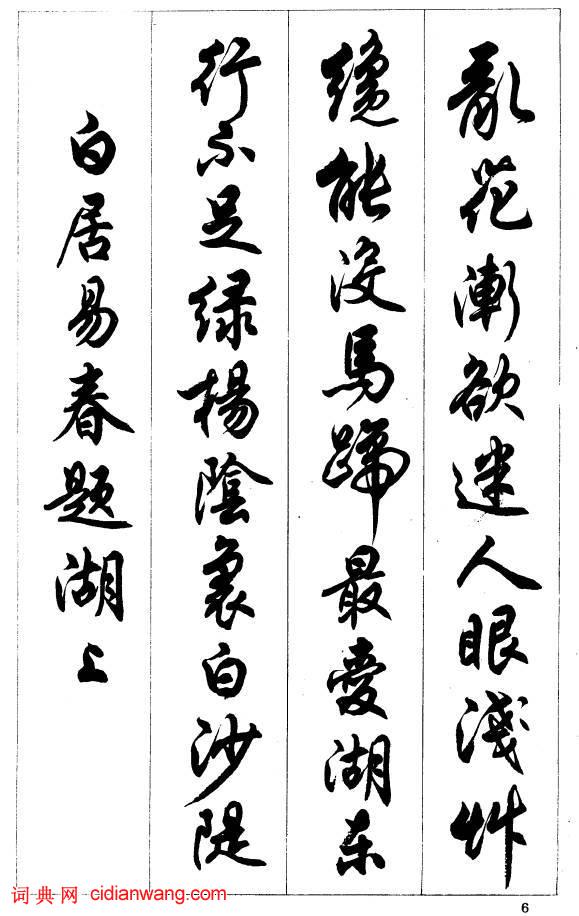 亂花漸欲迷人眼淺艸
纔能没馬蹄最愛湖东
行不足緑楊陰裏白沙隄
白居易春題湖上
词典网 cidianwang.com
6